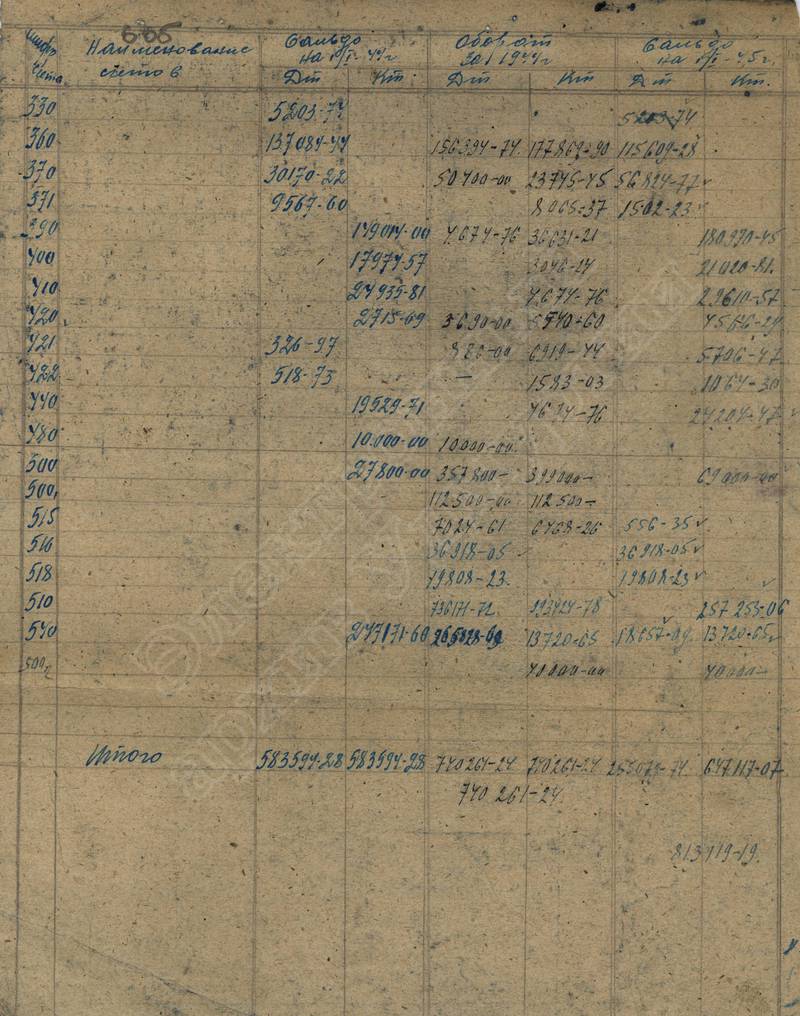 Шифр счета Наименование счетов Сальдо на 1/I-44г Оборот за 1944г Сальдо на 1/I-45г.
Дт Кт Дт Кт Дт Кт.
330 5203-74 5203-74
360 137084-44 156394-74 177869-90 115609-28
370 30170-22 50400-00 23745-45 56824-77
371 9567-60 8065-37 1502-23
390 149014-00 4674-76 36631-21 180970-45
400 17974-57 3046-24 21020-81
410 24935-81 4674-76 29610-57
420 2715-69 3690-00 5540-60 4566-29
421 326-97 886-00 6919-44 5706-47
422 518-73 — 1583-03 1064-30
440 19529-71 4674-76 24204-47
480 10.000-00 10000-00
500 27800-00 357800- 399000- 69000-00
500, 112500-00 112500-
515 7024-61 6468-26 556-35
516 36918-05 36918-05
518 19808-23 19808-23
510 736171-72 257253-06
540 247171-60 13720-65 18657-09 13720-65
500 40000-00 40000-
Итого 583594-28 583594-28 740261-24 740261-24 647117-07
740261-24
813119-19.